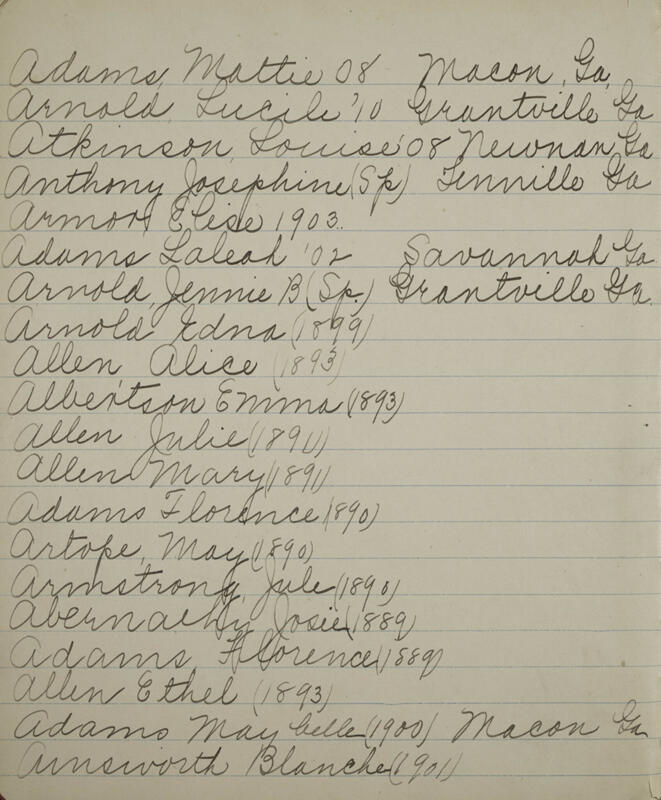 Adams, Mattie 08 Macon, Ga,
Arnold, Lucile '10 Grantville Ga
Atkinson, Louise '08 Newnan Ga
Anthony Josephine (Sp) Tennille Ga
Armor, Elise 1903.
Adams Laleah '02 Savannah Ga
Arnold, Jennie B (Sp.) Grantville Ga.
Arnold Edna (1899)
Allen, Alice (1893)
Albertson Emma (1893)
Allen Julie (1891)
Allen Mary (1891)
Adams Florence (1890)
Artope, May (1890)
Armstrong, Jule (1890)
Abernathy Josie (1889)
Adams, Florence (1889)
Allen Ethel (1893)
Adams May belle (1900) Macon Ga
Ainsworth Blanche (1901)